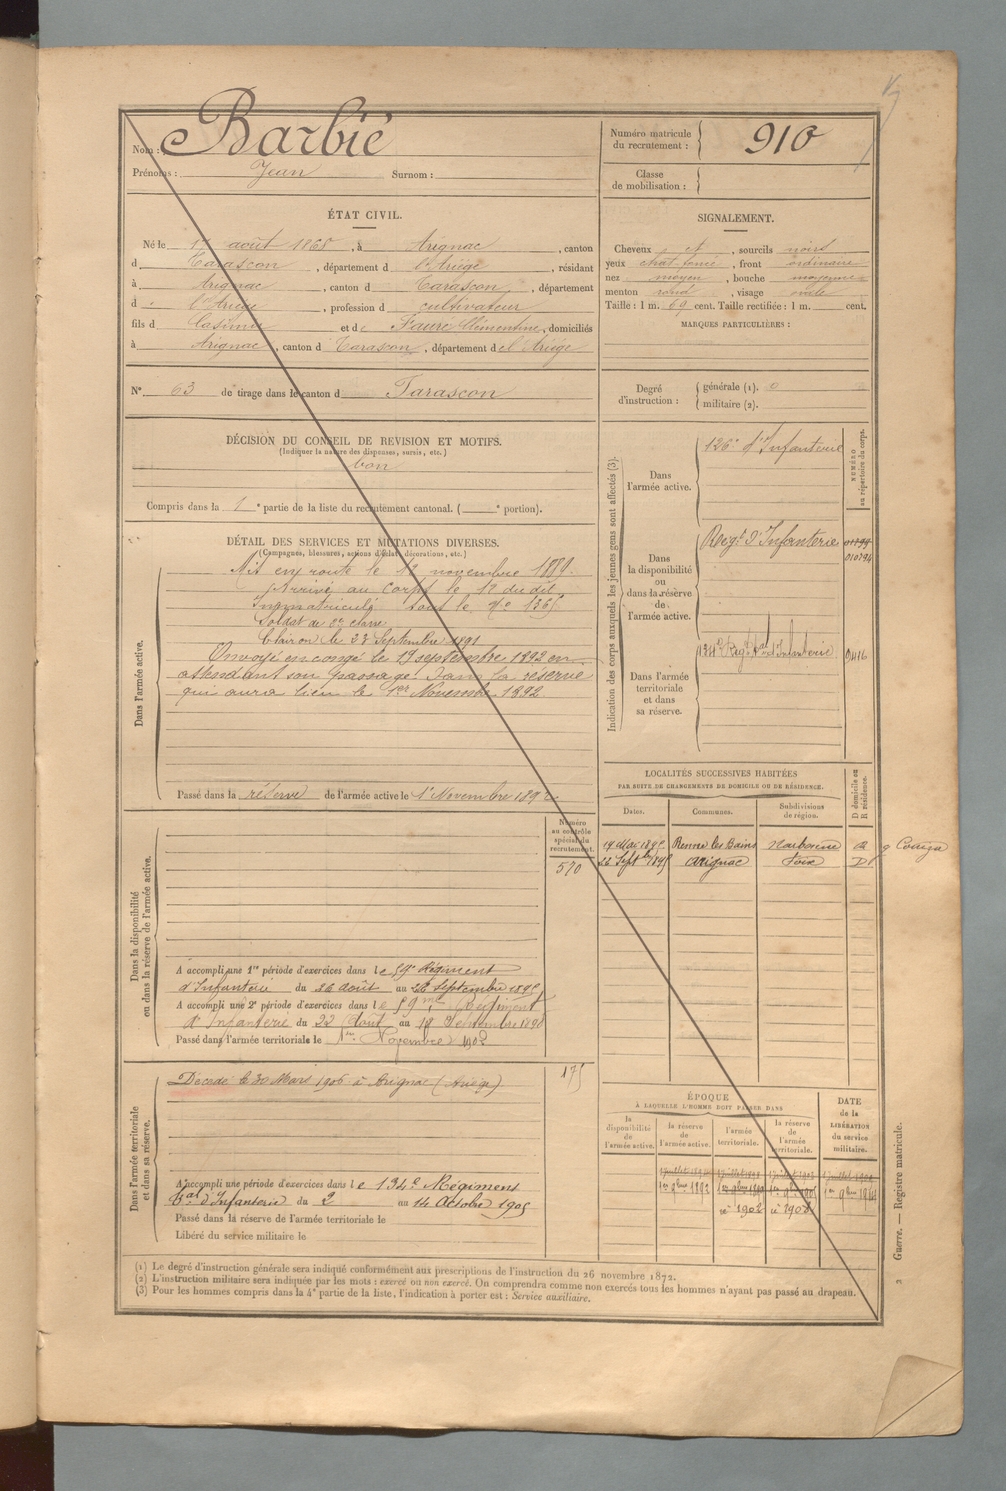 Nom : Barbié
Prénoms : Jean Surnom :
Numéro matricule du recrutement : 910
Classe de mobilisation :
ÉTAT CIVIL.
Né le 17 août 1868, à Arignac, canton
d Tarascon, département d l'Ariège, résidant
à Arignac, canton d Tarascon, département
d l'Ariège, profession d cultivateur
fils d Casimir et de Fauré Clémentine, domiciliés
à Arignac, canton d Tarascon, département de l'Ariège
N° 63 de tirage dans le canton d Tarascon
SIGNALEMENT.
Cheveux et, sourcils noirs
yeux chat. foncé, front ordinaire
nez moyen, bouche moyenne
menton rond, visage ovale
Taille : 1 m. 69 cent. Taille rectifiée : 1 m. cent.
MARQUES PARTICULIÈRES :
Degré d'instruction : générale (1). 0
militaire (2).
DÉCISION DU CONSEIL DE REVISION ET MOTIFS.
(Indiquer la nature des dispenses, sursis, etc.)
bon
Compris dans la 1e partie de la liste du recrutement cantonal. ( e portion).
DÉTAIL DES SERVICES ET MUTATIONS DIVERSES.
(Campagnes, blessures, actions d'éclat, décorations, etc.)
Dans l'armée active.
Mis en route le 12 novembre 1889.
Arrivé au corps le 12 du dit
Immatriculé sous le No 1365
Soldat de 2e classe
Clairon le 23 Septembre 1891
Envoyé en congé le 19 septembre 1892 en
attendant son passage dans la réserve
qui aura lieu le 1er Novembre 1892
Passé dans la réserve de l'armée active le 1er Novembre 1892
Indication des corps auxquels les jeunes gens sont affectés (3).
NUMÉRO au répertoire du corps.
Dans l'armée active.
126e d'Infanterie
Dans la disponibilité ou dans la réserve de l'armée active.
Regt d'Infanterie
010794
Dans l'armée territoriale et dans sa réserve.
134e Regt d'Infanterie
LOCALITÉS SUCCESSIVES HABITÉES
PAR SUITE DE CHANGEMENTS DE DOMICILE OU DE RÉSIDENCE.
Dates. Communes. Subdivisions de région. D domicile ou R résidence.
Renne les Bains Narbonne R
Arignac Foix D
Numéro au contrôle spécial du recrutement.
570
Dans la disponibilité ou dans la réserve de l'armée active.
A accompli une 1re période d'exercices dans le 59e Régiment
d'Infanterie du 26 août au Septembre 1895
A accompli une 2e période d'exercices dans le 59me Régiment
d'Infanterie du 22 Août au 18 Septembre 1898
Passé dans l'armée territoriale le 1er Novembre 1902
175
Dans l'armée territoriale et dans sa réserve.
Décédé le 30 Mars 1906 à Arignac (Ariège)
A accompli une période d'exercices dans le 134e Régiment
tal d'Infanterie du 2 au 14 Octobre 1905
Passé dans la réserve de l'armée territoriale le
Libéré du service militaire le
ÉPOQUE
À LAQUELLE L'HOMME DOIT PASSER DANS
la disponibilité de l'armée active.
la réserve de l'armée active.
l'armée territoriale.
la réserve de l'armée territoriale.
DATE de la LIBÉRATION du service militaire.
1er 9bre 1892
1902
1908
(1) Le degré d'instruction générale sera indiqué conformément aux prescriptions de l'instruction du 26 novembre 1872.
(2) L'instruction militaire sera indiquée par les mots : exercé ou non exercé. On comprendra comme non exercés tous les hommes n'ayant pas passé au drapeau.
(3) Pour les hommes compris dans la 4e partie de la liste, l'indication à porter est : Service auxiliaire.
Guerre. — Registre matricule.
2